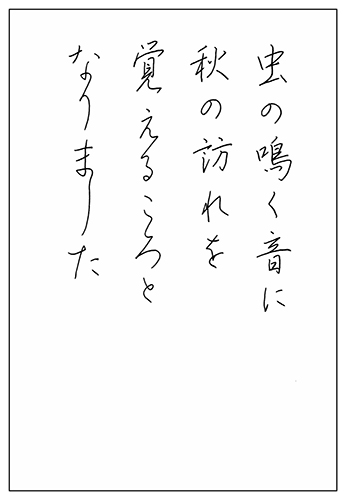 虫の鳴く音に
秋の訪れを
覚えるころと
なりました